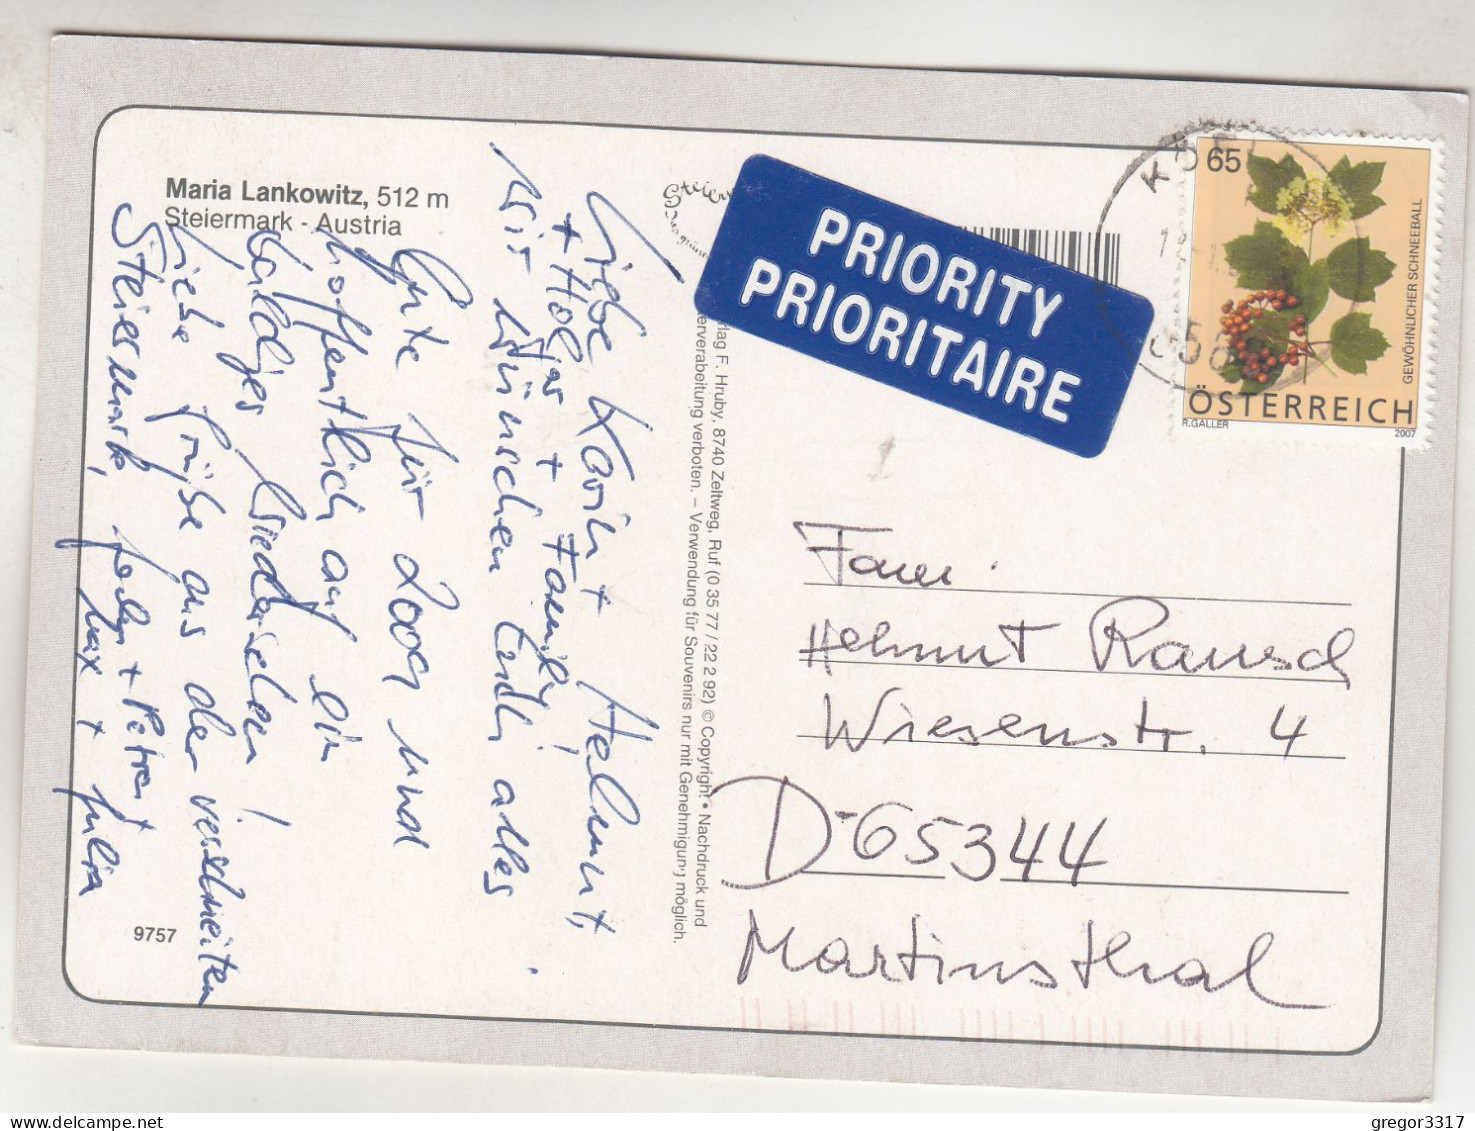 Maria Lankowitz, 512 m
Steiermark - Austria
Liebe Karin + Helmut,
+ Holger + Family
wir wünschen Euch alles
Gute für 2009 und
hoffentlich auf ein
baldiges Wiedersehen!
Liebe Grüße aus der verschneiten
Steiermark,
+ Petra +
Max + Julia
9757
Steier
lag F. Hruby, 8740 Zeltweg, Ruf (0 35 77 / 22 2 92) © Copyright • Nachdruck und
erverabeitung verboten. – Verwendung für Souvenirs nur mit Genehmigung möglich.
PRIORITY
PRIORITAIRE
65
GEWÖHNLICHER SCHNEEBALL
ÖSTERREICH
R.GALLER
2007
Fam.
Helmut Rausch
Wiesenstr. 4
D-65344
Martinsthal
gregor3317